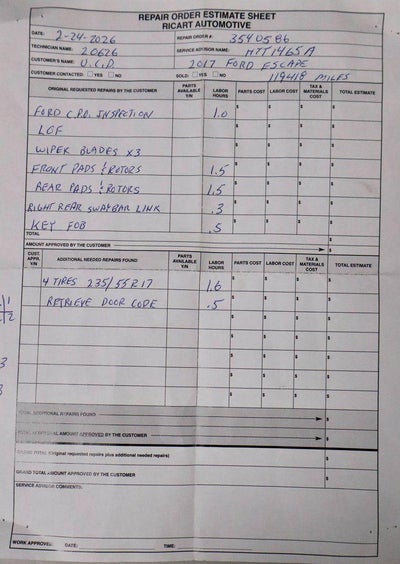 REPAIR ORDER ESTIMATE SHEET
RICART AUTOMOTIVE
DATE: 2-24-2026 REPAIR ORDER #: 3540586
TECHNICIAN NAME: 20626 SERVICE ADVISOR NAME: MTT1465A
CUSTOMER'S NAME: U.C.D. 2017 FORD ESCAPE
CUSTOMER CONTACTED: YES NO SOLD: YES NO 119418 MILES
ORIGINAL REQUESTED REPAIRS BY THE CUSTOMER PARTS AVAILABLE Y/N LABOR HOURS PARTS COST LABOR COST TAX & MATERIALS COST TOTAL ESTIMATE
FORD C.P.O. INSPECTION 1.0 $ $ $ $
LOF $ $ $ $
WIPER BLADES x3 $ $ $ $
FRONT PADS & ROTORS 1.5 $ $ $ $
REAR PADS & ROTORS 1.5 $ $ $ $
RIGHT REAR SWAYBAR LINK .3 $ $ $ $
KEY FOB .5 $ $ $ $
TOTAL $
AMOUNT APPROVED BY THE CUSTOMER $
CUST. APPR. Y/N ADDITIONAL NEEDED REPAIRS FOUND PARTS AVAILABLE Y/N LABOR HOURS PARTS COST LABOR COST TAX & MATERIALS COST TOTAL ESTIMATE
4 TIRES 235/55R17 1.6 $ $ $ $
RETRIEVE DOOR CODE .5 $ $ $ $
$ $ $ $
$ $ $ $
$ $ $ $
$ $ $ $
$ $ $ $
TOTAL ADDITIONAL REPAIRS FOUND $
TOTAL ADDITIONAL AMOUNT APPROVED BY THE CUSTOMER $
GRAND TOTAL (Original requested repairs plus additional needed repairs) $
GRAND TOTAL AMOUNT APPROVED BY THE CUSTOMER $
SERVICE ADVISOR COMMENTS:
WORK APPROVED: DATE: TIME: